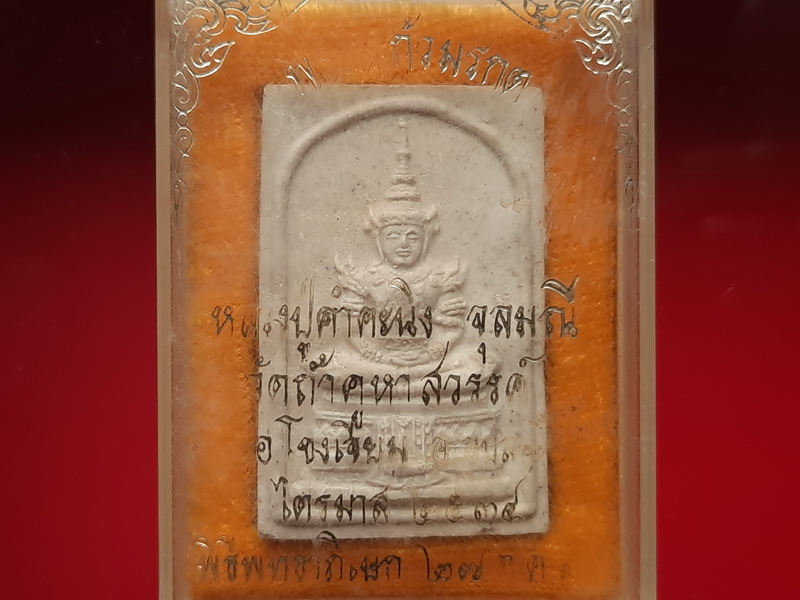 แก้วมรกต
หลวงปู่คำคะนิง จุลมณี
วัดถ้ำคูหาสวรรค์
อ.โขงเจียม
ไตรมาส ๒๕๓๔
พิธีพุทธาภิเษก ๒๗